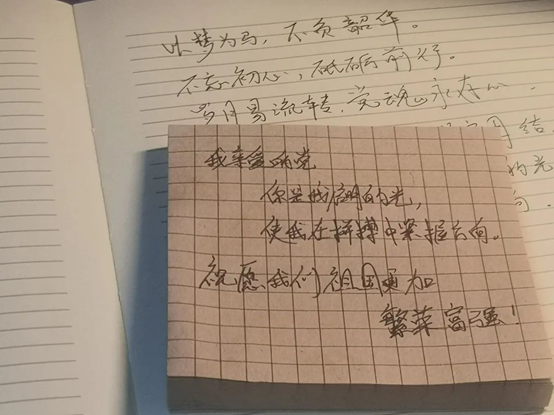 以梦为马，不负韶华。
不忘初心，砥砺前行。
岁月易流转，党魂永存心
月结
的光
向．
我亲爱的党
你是我启明的光，
使我在拼搏中掌握方向。
祝愿我们祖国更加
繁华富强！